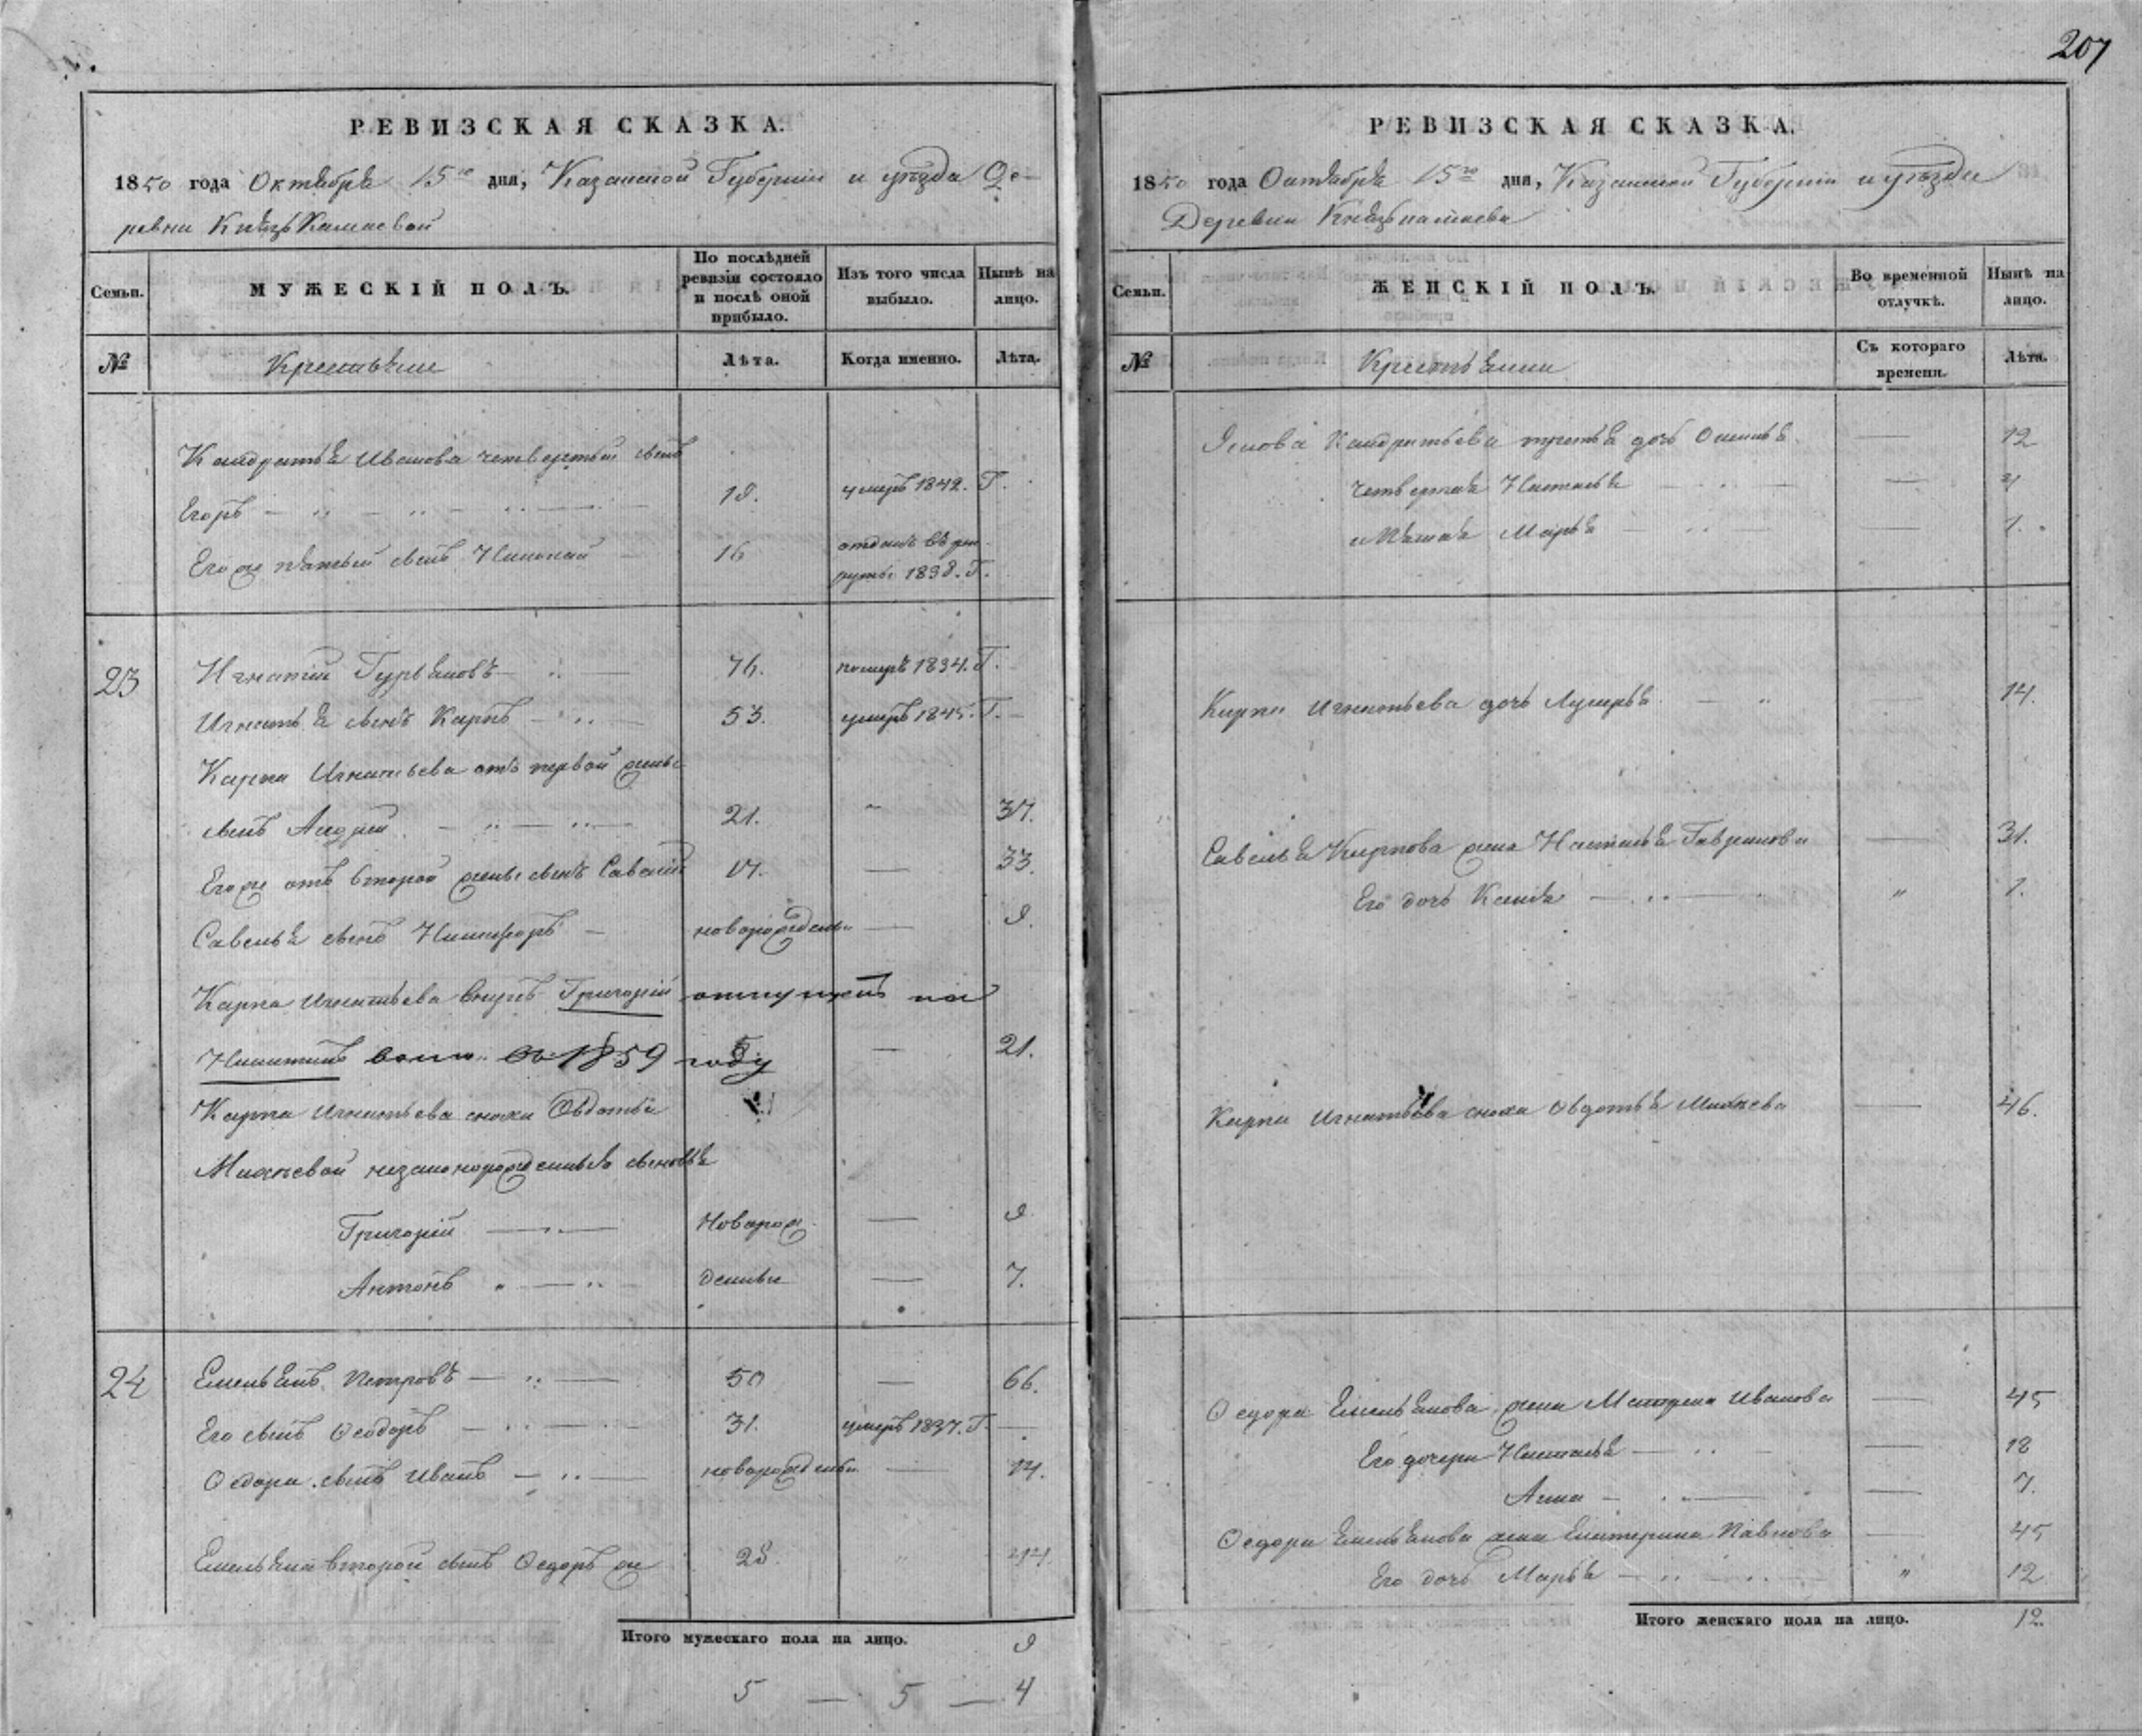 207
РЕВИЗСКАЯ СКАЗКА.
1850 года Октября 15го дня, Казанской Губернии и уѣзда Де-
ревни КнязьКамаевой
Семьи.
МУЖЕСКІЙ ПОЛЪ.
По послѣдней ревизіи состояло и послѣ оной прибыло.
Изъ того числа выбыло.
Нынѣ на лицо.
№
Крестьяне
Лѣта.
Когда именно.
Лѣта.
Кандратья Иванова четвертый сынъ
Егоръ 18. умеръ 1842. Г.
Его же пятый сынъ Николай 16 отданъ въ рек
руты 1838. Г.
23 Игнатій Гурьяновъ 76. померъ 1834. Г.
Игнатья сынъ Карпъ 53. умеръ 1845. Г.
Карпа Игнатьева отъ первой жены
сынъ Андрей 21. 37.
Его же отъ второй жены сынъ Савелій 17. 33.
Савелья сынъ Никифоръ новорожденны 9.
Карпа Игнатьева внукъ Григорій отпущенъ на
Никитинъ волю въ 1859 году 21.
Карпа Игнатьева снохи Овдотьи
незаконорожденныя сыновья
Григорій Новорож 9
Антонъ денныи 7.
24 Емельянъ Петровъ 50 66.
Его сынъ Ѳеодоръ 31. умеръ 1837. Г.
Ѳедора сынъ Иванъ новорожденны 14.
Емельяна второй сынъ Ѳедоръ же 28.
Итого мужескаго пола на лицо. 9
5 — 5 — 4
РЕВИЗСКАЯ СКАЗКА.
1850 года Октября 15го дня, Казанской Губерніи и уѣзда
Деревни Князькамаева
Семьи.
ЖЕНСКІЙ ПОЛЪ.
Во временной отлучкѣ.
Нынѣ на лицо.
№
Крестьянки
Съ котораго времени.
Лѣта.
Кандратьева третья дочь 12
четвертая Настасья
и Пятая Марья 1.
Карпа Игнатьева дочь Лукерья 14.
Савелья Карпова жена Настасья Гаврилова 31.
Его дочь 1.
Карпа Игнатьева сноха Овдотья 46.
Ѳедора Емельянова жена Матрена Иванова 45
Его дочери Настасья 18
Анна 7.
Ѳедора Емельянова жена Екатерина Павлова 45
Его дочь Марья 12
Итого женскаго пола на лицо. 12